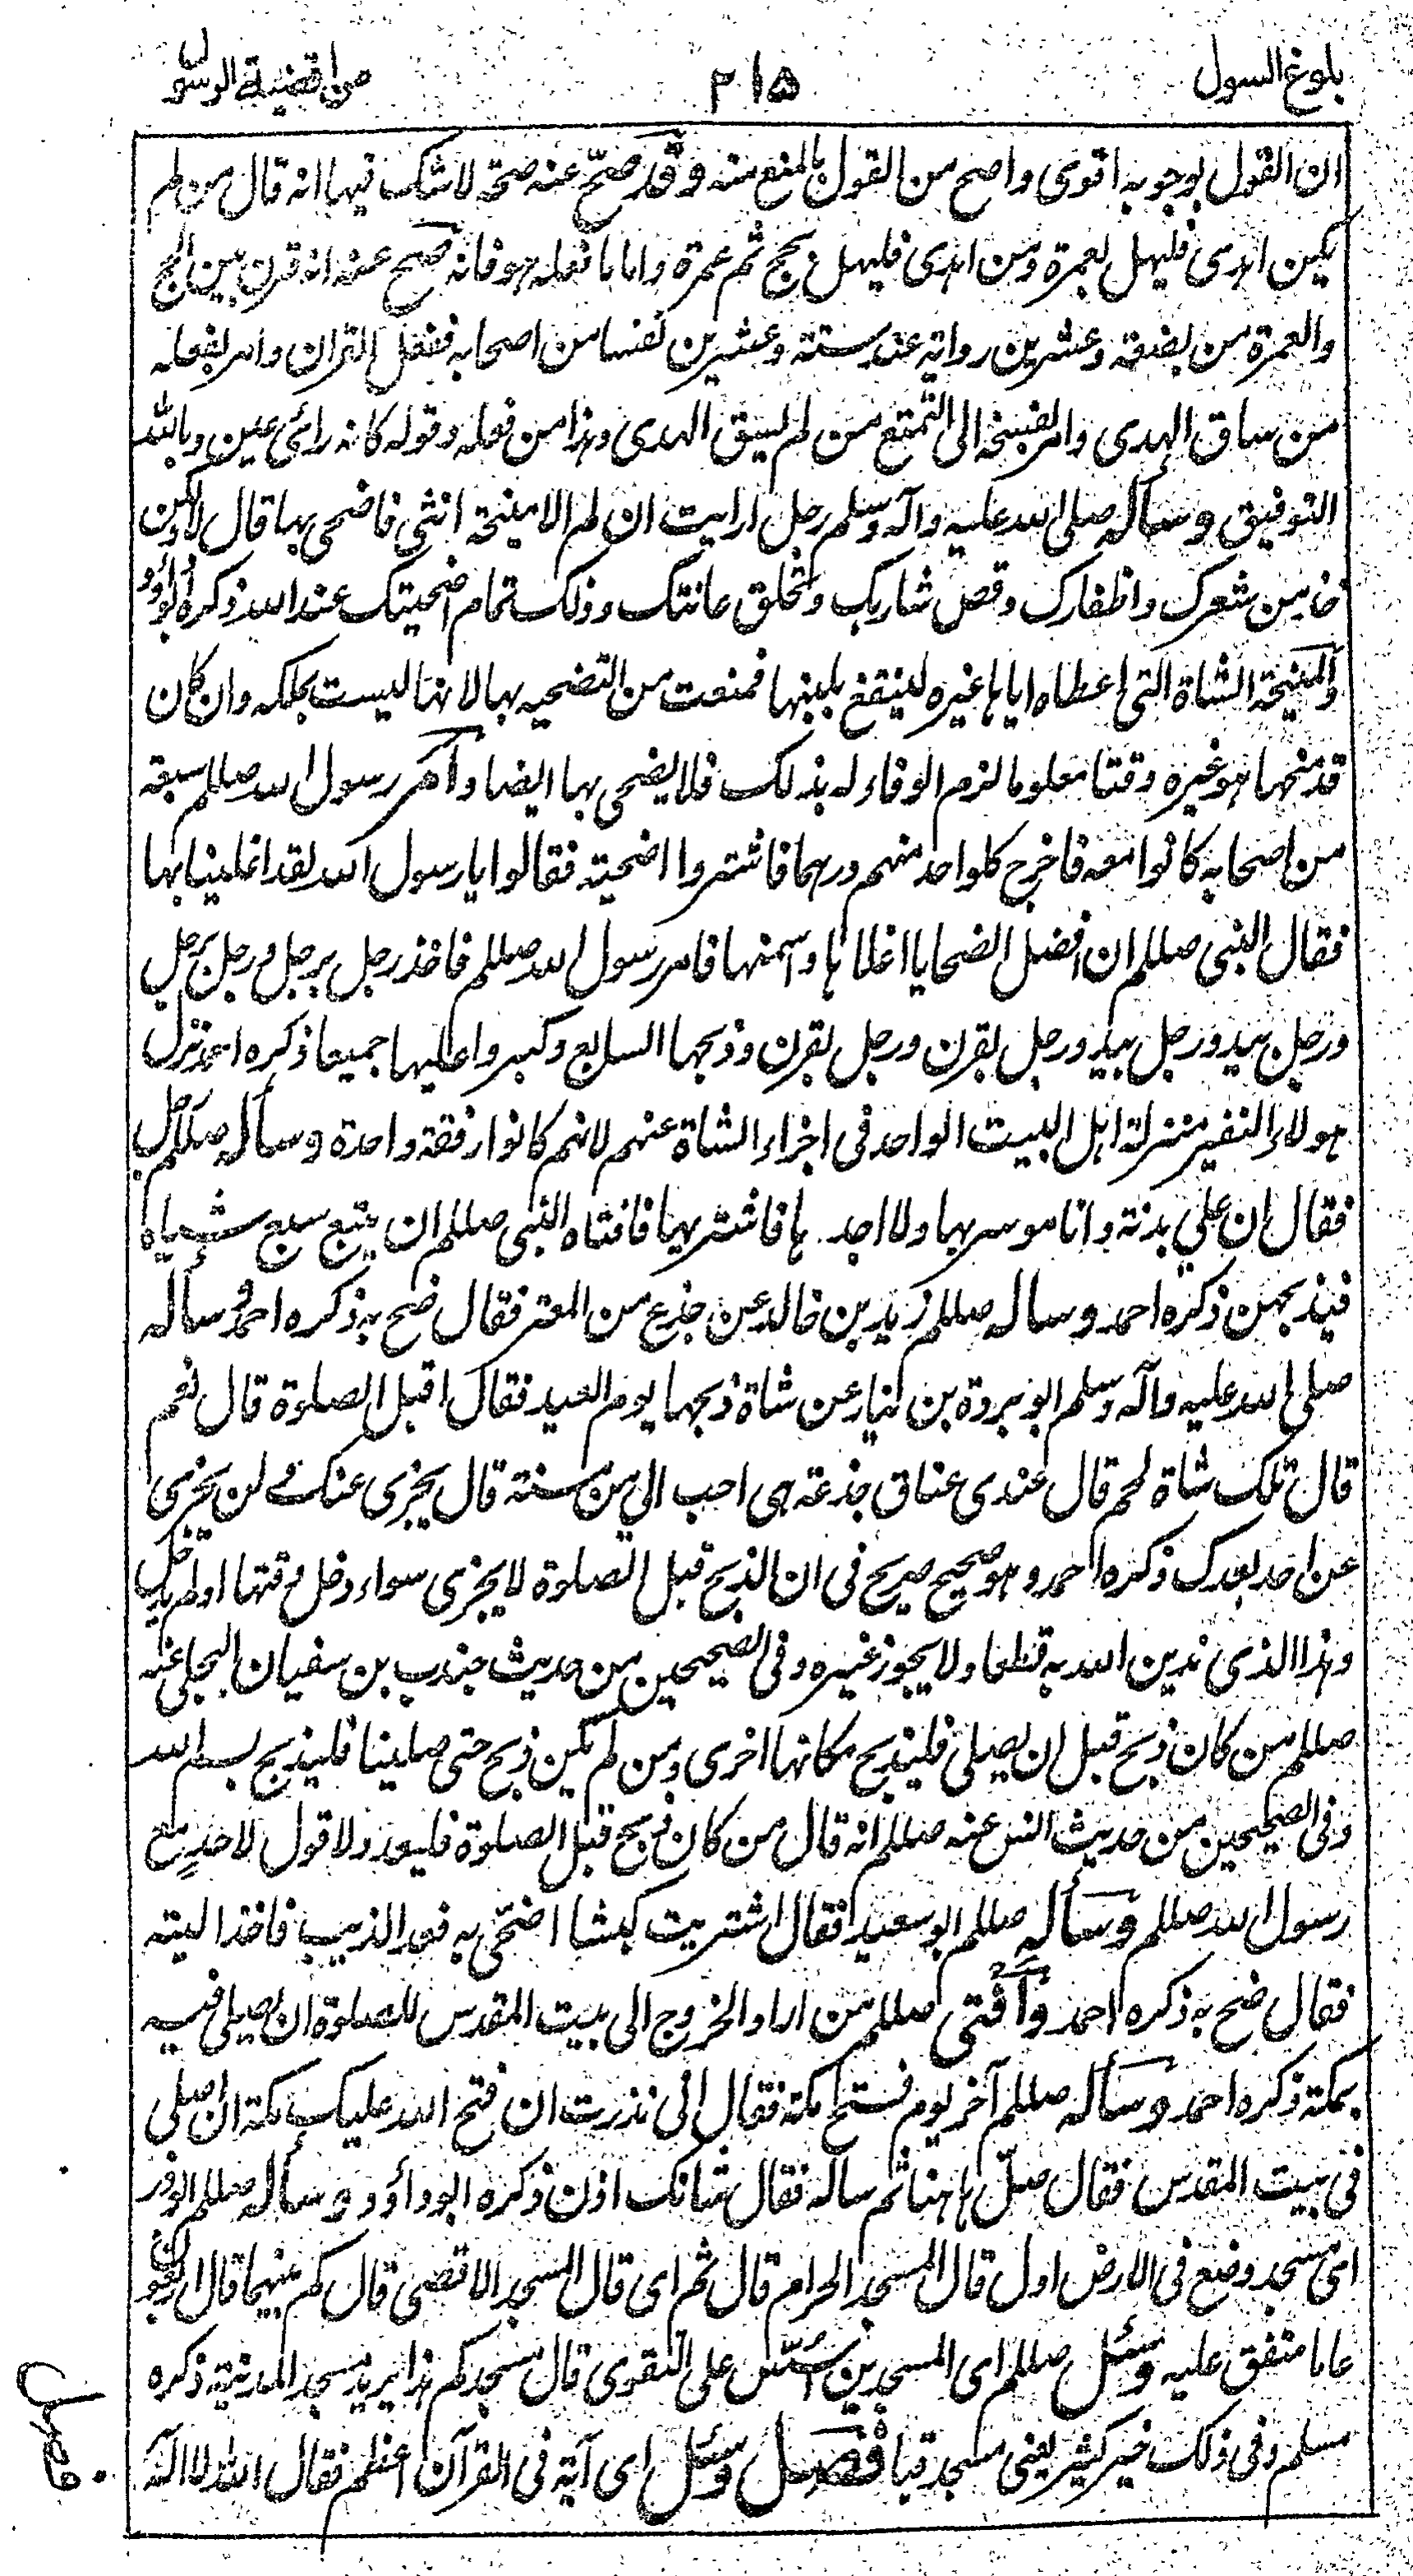 بلوغ السول
۲۱۵
من اقضیة الرسول
ان القول بوجوبه اقوی واصح من القول بالمنع منه وقد صح عنه صحة لا شک فیها انه قال من لم
یکن اهدی فلیهل بعمرة ومن اهدی فلیهل بحج ثم عمرة واما ما فعله هو فانه صح عنه انه قرن بین الحج
والعمرة من بضعة وعشرین روایة عند ستة وعشرین نفسا من اصحابه ففعل القران وامر بفعله
من ساق الهدی وامر بفسخه الی التمتع من لم یسق الهدی وهذا من فعله وقوله کانه رائی عین وبالله
التوفیق وسأله صلی الله علیه وآله وسلم رجل ارایت ان لم الا منیحة انثی فاضحی بها قال لا ولکن
خذ من شعرک واظفارک وقص شاربک وتحلق عانتک وذلک تمام اضحیتک عند الله ذکره ابو داؤد
والمنیحة الشاة التی اعطاه ایاها غیره لینتفع بلبنها فمنعت من التضحیه بها لانها لیست بملکه وان کان
قد منحها هو غیره وقتا معلوما لزم الوفاء له بذلک فلا یضحی بها ایضا وامر رسول الله صللم سبعة
من اصحابه کانوا معه فاخرج کلواحد منهم درهما فاشتروا اضحیة فقالوا یا رسول الله لقد اغلینا بها
فقال النبی صللم ان افضل الضحایا اغلاها واسمنها فامر رسول الله صللم فاخذ رجل برجل ورجل برجل
ورجل بید ورجل بید ورجل بقرن ورجل بقرن وذبحها السابع وکبروا علیها جمیعا ذکره احمد نزل
هولاء النفیر منزلة اهل البیت الواحد فی اجزاء الشاة عنهم لانهم کانوا رفقة واحدة وسأله صللم رجل
فقال ان علی بدنة وانا موسر بها ولا اجدها فاشتریها فافتاه النبی صللم ان یبتع سبع شیاه
فیذبحهن ذکره احمد وساله صللم زید بن خالد عن جذع من المعز فقال ضح به ذکره احمد وسأله
صلی الله علیه وآله وسلم ابو بردة بن نیار عن شاة ذبحها یوم العید فقال اقبل الصلوة قال نعم
قال تلک شاة لحم قال عندی عناق جذعة هی احب الی من مسنة قال یجزی عنک ولن یجزی
عن احد بعدک ذکره احمد وهو صحیح صریح فی ان الذبح قبل الصلوة لا یجزی سواء دخل وقتها او لم یدخل
وهذا الذی ندین الله به قطعا ولا یجوز غیره وفی الصحیحین من حدیث جندب بن سفیان البجلی عنه
صللم من کان ذبح قبل ان یصلی فلیذبح مکانها اخری ومن لم یکن ذبح حتی صلینا فلیذبح بسم الله
وفی الصحیحین من حدیث انس عنه صللم انه قال من کان ذبح قبل الصلوة فلیعد ولا قول لاحد مع
رسول الله صللم وسأله صللم ابو سعید فقال اشتریت کبشا اضحی به فعد الذیب فاخذ الیته
فقال ضح به ذکره احمد وأفتی صللم من اراد الخروج الی بیت المقدس للصلوة ان یصلی فیه
بمکة ذکره احمد وسأله صللم آخر یوم فتح مکة فقال انی نذرت ان فتح الله علیک مکة ان اصلی
فی بیت المقدس فقال صل هاهنا ثم ساله فقال شانک اذن ذکره ابو داؤد وسأله صللم ابو ذر
ای مسجد وضع فی الارض اول قال المسجد الحرام قال ثم ای قال المسجد الاقصی قال کم بینهما قال اربعون
عاما متفق علیه وسئل صللم ای المسجدین اسس علی التقوی قال مسجدکم هذا یرید مسجد المدینة ذکره
مسلم وفی ذلک خیر کثیر یعنی مسجد قبا فصل وسئل ای آیة فی القرآن اعظم فقال الله لا اله
فصل